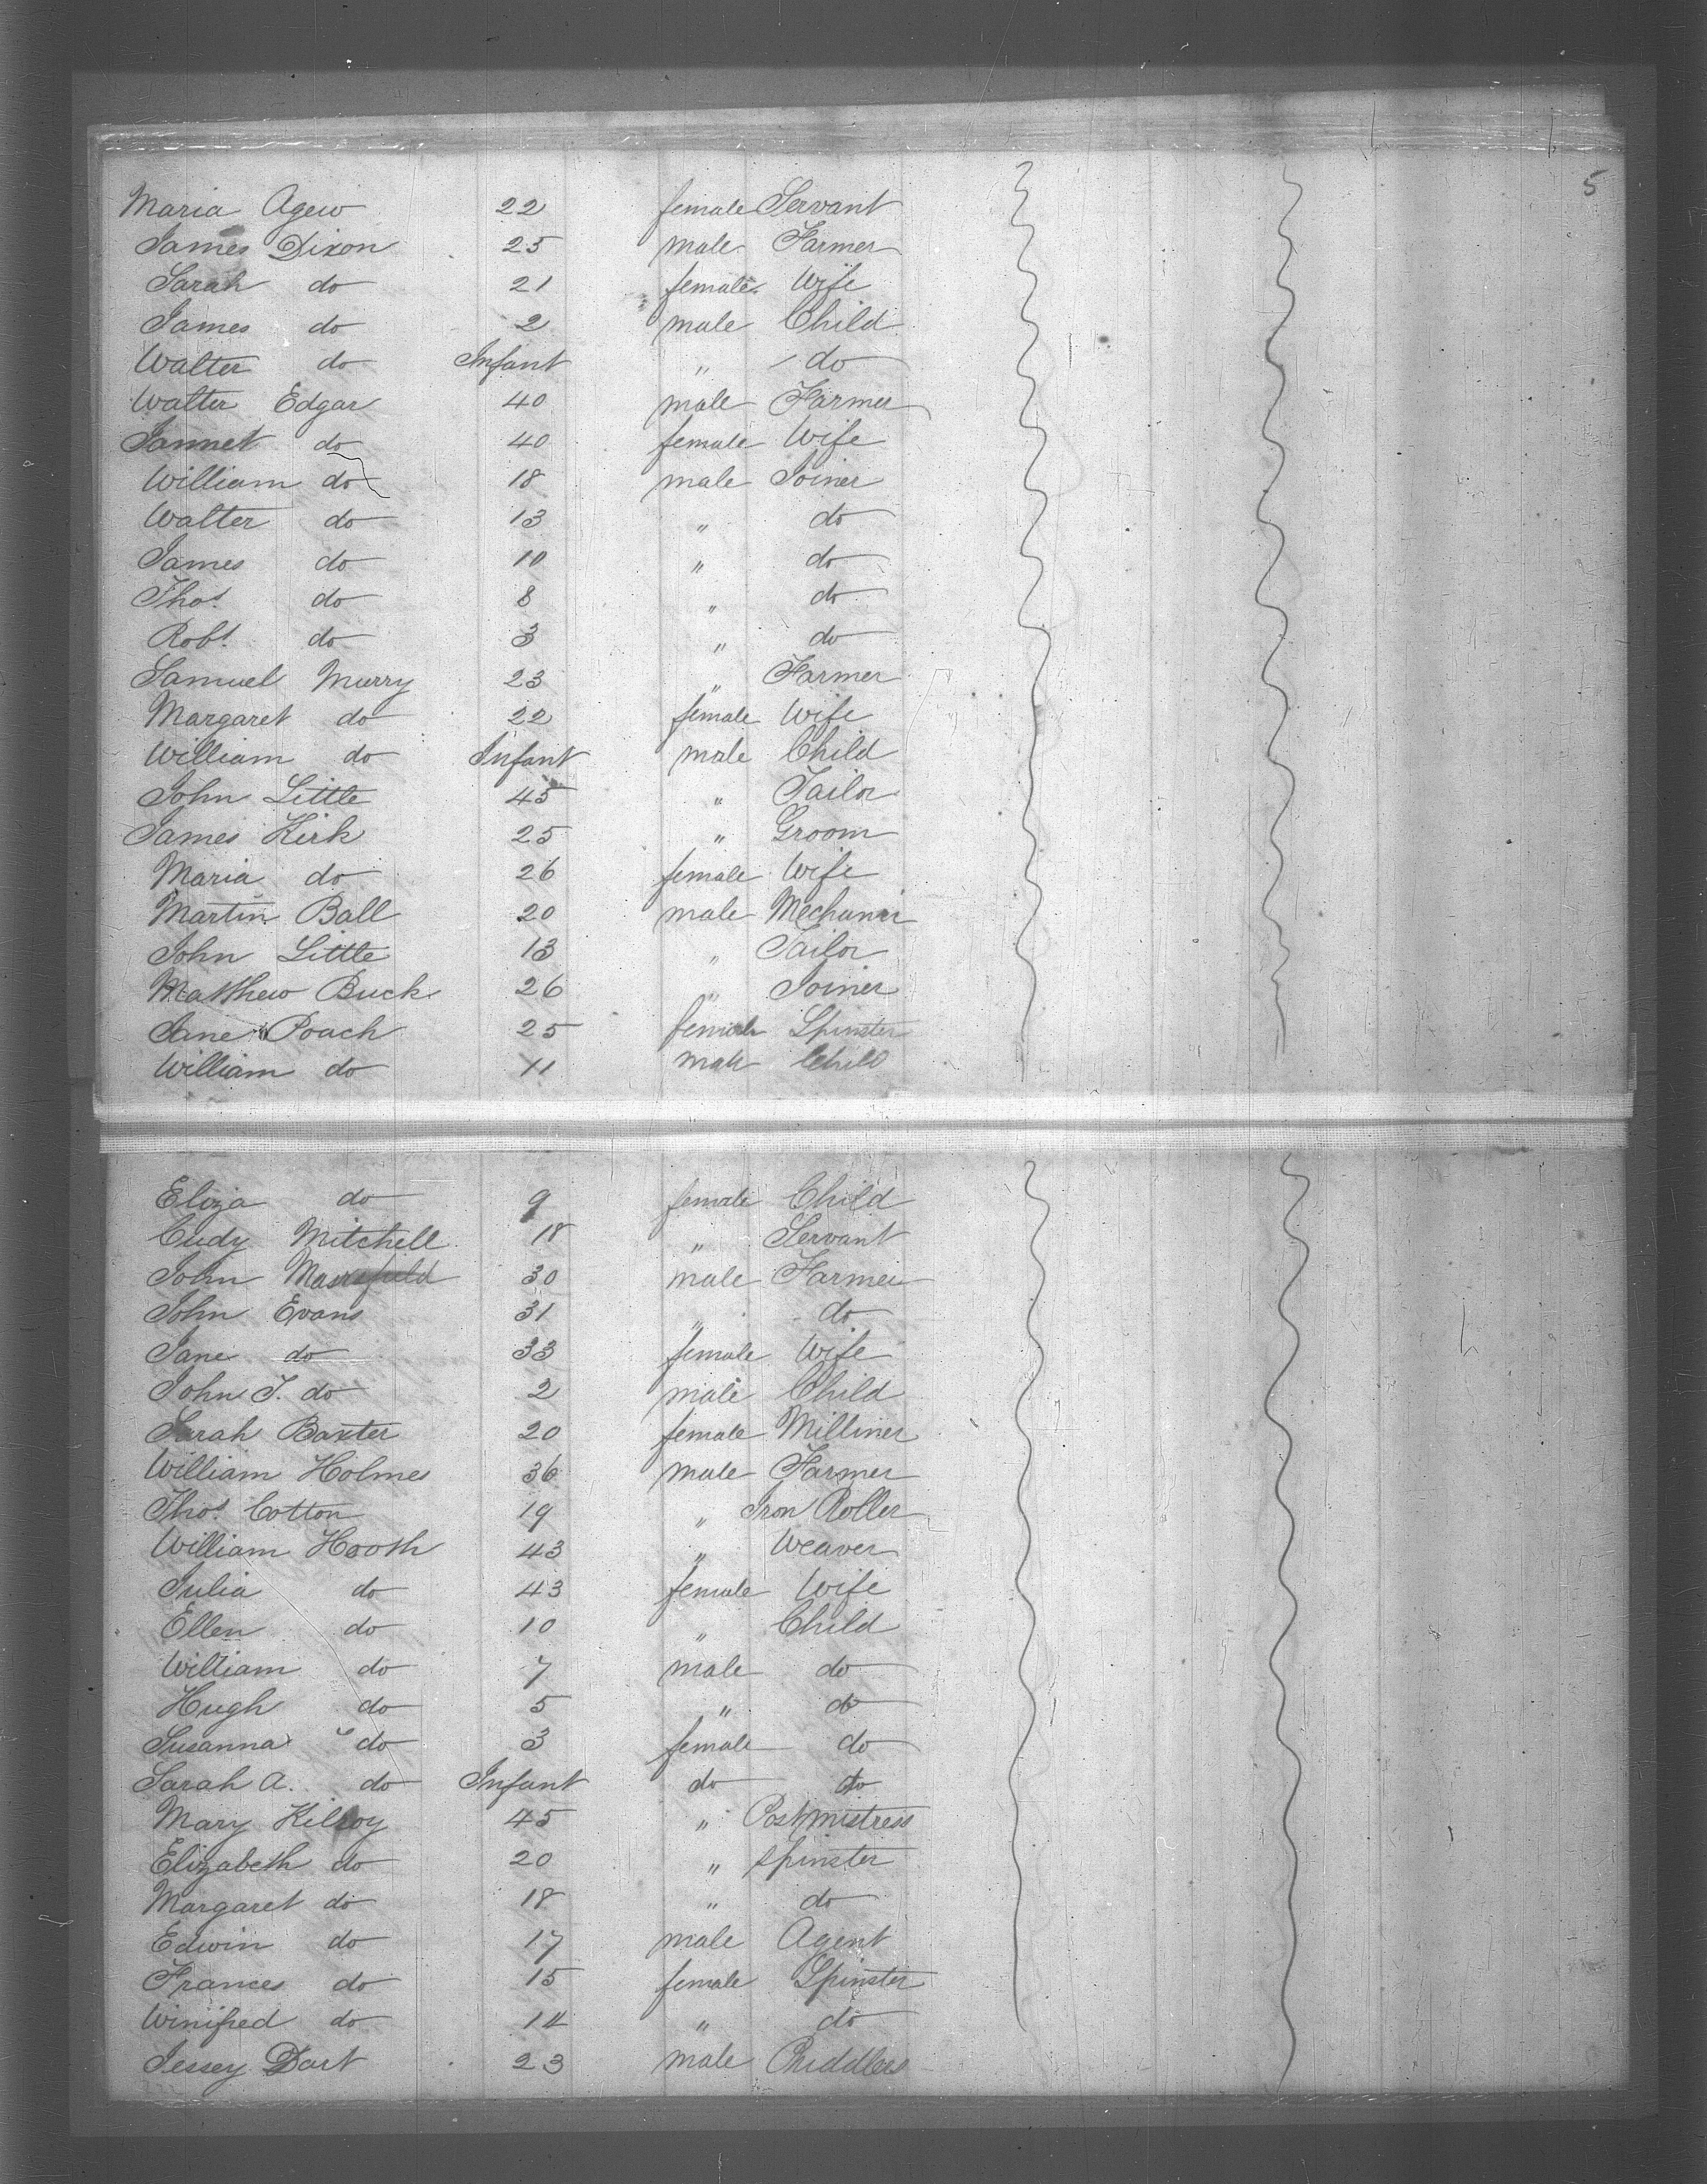 5
Maria Agew 22 female Servant
James Dixon 25 male Farmer
Sarah do 21 female Wife
James do 2 male Child
Walter do Infant " do
Walter Edgar 40 male Farmer
Jannet do 40 female Wife
William do 18 male Joiner
Walter do 13 " do
James do 10 " do
Thos. do 8 " do
Robt. do 3 " do
Samuel Murry 23 " Farmer
Margaret do 22 female Wife
William do Infant male Child
John Little 45 " Tailor
James Kirk 25 " Groom
Maria do 26 female Wife
Martin Ball 20 male Mechanic
John Little 13 " Tailor
Matthew Buck 26 " Joiner
Jane Poach 25 female Spinster
William do 11 male Child
Eliza do 9 female Child
Cudy Mitchell 18 " Servant
John 30 male Farmer
John Evans 31 " do
Jane do 33 female Wife
John T. do 2 male Child
Sarah Baxter 20 female Milliner
William Holmes 36 male Farmer
Thos. Cotton 19 " Iron Roller
William Hooth 43 " Weaver
Julia do 43 female Wife
Ellen do 10 " Child
William do 7 male do
Hugh do 5 " do
Susanna do 3 female do
Sarah A. do Infant do do
Mary Kilroy 45 " Postmistress
Elizabeth do 20 " Spinster
Margaret do 18 " do
Edwin do 17 male Agent
Frances do 15 female Spinster
Winifred do 14 " do
Jessey Dart 23 male Puddler